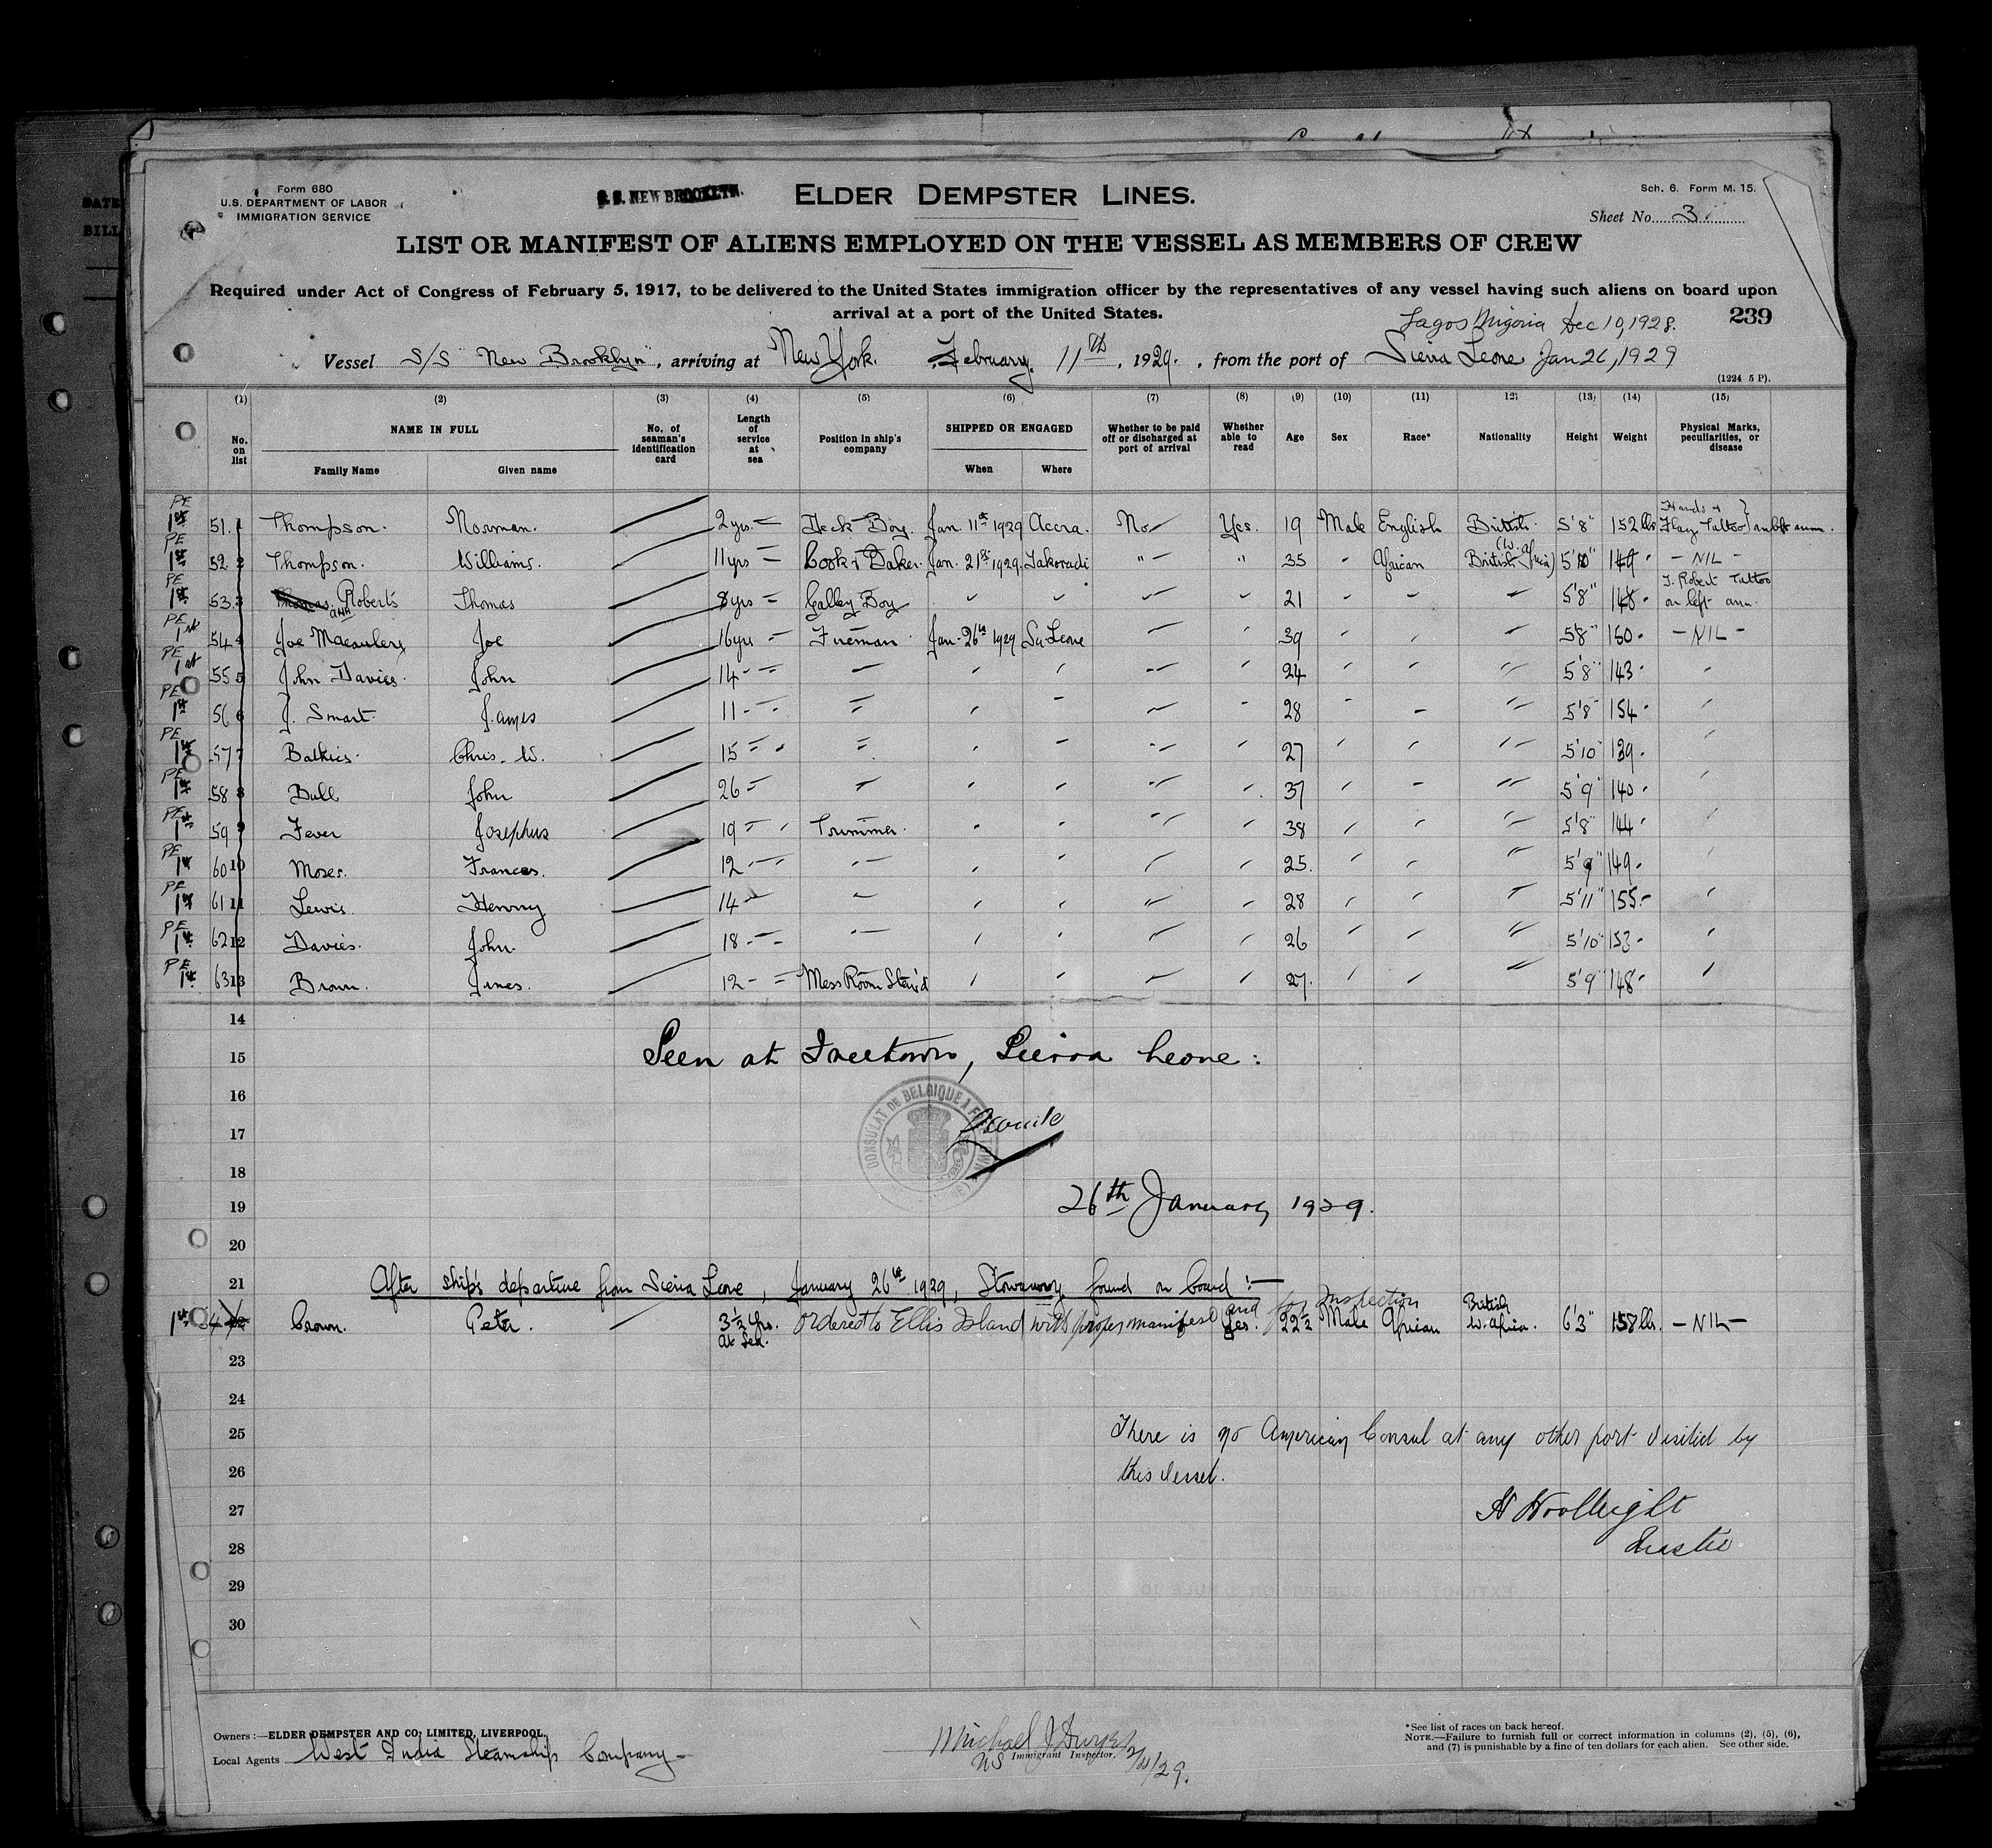 Form 680
U.S. DEPARTMENT OF LABOR
IMMIGRATION SERVICE
S.S. NEW BROOKLYN.
ELDER DEMPSTER LINES.
Sch. 6. Form M. 15.
Sheet No. 3.
LIST OR MANIFEST OF ALIENS EMPLOYED ON THE VESSEL AS MEMBERS OF CREW
Required under Act of Congress of February 5, 1917, to be delivered to the United States immigration officer by the representatives of any vessel having such aliens on board upon
arrival at a port of the United States.
Lagos Nigeria Dec 10, 1928.
239
Vessel S/S "New Brooklyn", arriving at New York. February 11th, 1929., from the port of Sierra Leone Jan 26, 1929
(1224 5 P).
(1) (2) (3) (4) (5) (6) (7) (8) (9) (10) (11) (12) (13) (14) (15)
No. on list NAME IN FULL Family Name Given name No. of seaman's identification card Length of service at sea Position in ship's company SHIPPED OR ENGAGED When Where Whether to be paid off or discharged at port of arrival Whether able to read Age Sex Race* Nationality Height Weight Physical Marks, peculiarities, or disease
PE 1st 51. 1 Thompson. Norman. 2 yrs. Deck Boy. Jan. 11th 1929 Accra. No Yes. 19 Male English British. 5'8" 152 lbs Hands & Flag Tattoo on left arm.
PE 1st 52 2 Thompson. Williams. 11 yrs Cook & Baker. Jan. 21st 1929. Takoradi " " 35 African British (W. Africa) 5'10" 149 - NIL -
PE 1st 53 3 Thomas Roberts Thomas 8 yrs Galley Boy 21 5'8" 148 T. Robert Tattoo on left arm.
PE 1st 54 4 Joe Macauley Joe 16 yrs Fireman Jan. 26th 1929 Sa Leone 39 5'8" 150 - NIL -
PE 1st 55 5 John Davies. John 14 24 5'8" 143
PE 1st 56 6 J. Smart. James 11 28 5'8" 154
PE 1st 57 7 Chris. W. 15 27 5'10" 139
PE 1st 58 8 Bull John 26 37 5'9" 140
PE 1st 59 9 Fever Josephus 19 Trimmer. 38 5'8" 144
PE 1st 60 10 Moses. Frances. 12 25. 5'9" 149
PE 1st 61 11 Lewis. Henry 14 28 5'11" 155
PE 1st 62 12 Davies. John. 18 26 5'10" 153
PE 1st 63 13 Brown. James. 12 Mess Room Stew'd 27. 5'9" 148
14
15 Seen at Freetown, Sierra Leone:
16
CONSULAT DE BELGIQUE A FREETOWN
17
18
19 26th January 1929.
20
21 After ship's departure from Sierra Leone, January 26th 1929, Stowaway found on board:-
1st Brown. Peter. 3½ Yrs. At Sea. Ordered to Ellis Island with proper manifest and for Inspection Yes. 22½ Male African British W. Africa. 6'3" 158 lbs. - NIL -
23
24
25 There is no American Consul at any other port visited by
26 this vessel.
27
28
29
30
Owners:—ELDER DEMPSTER AND CO, LIMITED, LIVERPOOL.
Local Agents West India Steamship Company
Michael J.
US Immigrant Inspector. 2/11/29.
*See list of races on back hereof.
NOTE.—Failure to furnish full or correct information in columns (2), (5), (6),
and (7) is punishable by a fine of ten dollars for each alien. See other side.